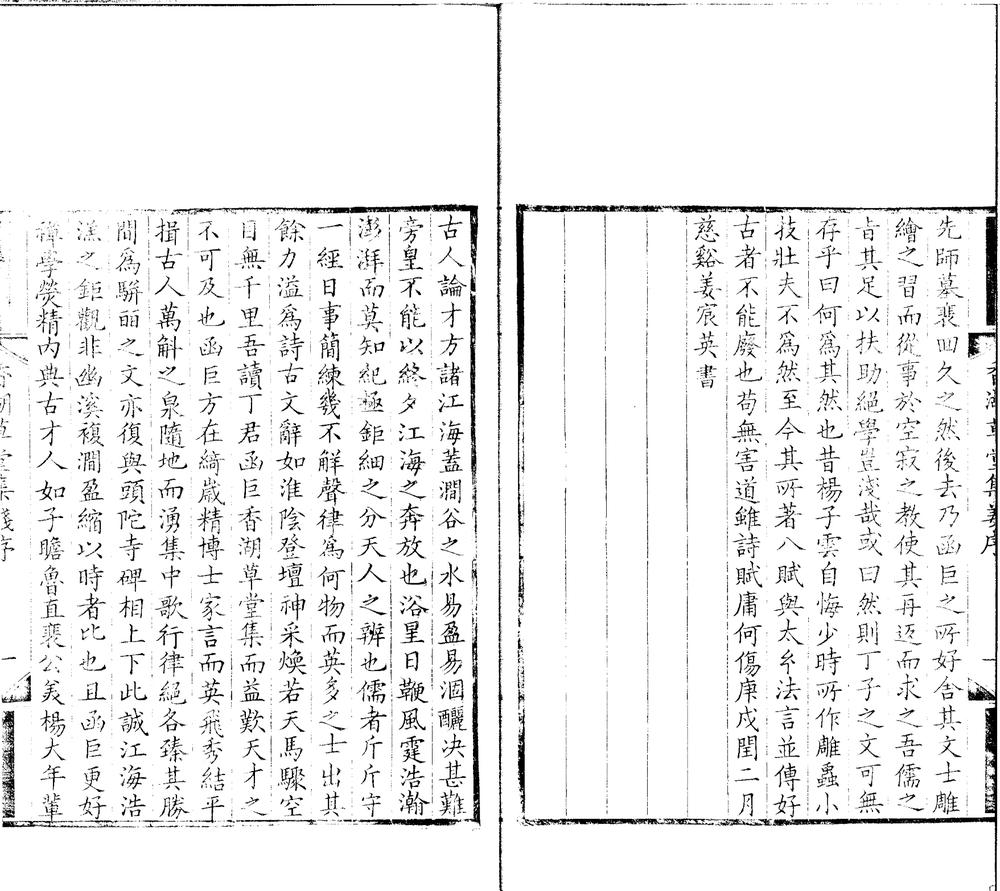 香湖草堂集姜序
先師墓裴回久之然後去乃函巨之所好舍其文士雕
繪之習而從事於空寂之教使其再返而求之吾儒之
旨其足以扶助絕學豈淺哉或曰然則丁子之文可無
存乎曰何為其然也昔楊子雲自悔少時所作雕蟲小
技壯夫不為然至今其所著八賦與太玄法言並傳好
古者不能廢也苟無害道雖詩賦庸何傷庚戌閏二月
慈谿姜宸英書
古人論才方諸江海蓋澗谷之水易盈易涸釃決甚難
旁皇不能以終夕江海之奔放也浴星日鞭風霆浩瀚
澎湃而莫知紀極鉅細之分天人之辨也儒者斤斤守
一經日事簡練幾不觧聲律為何物而英多之士出其
餘力溢為詩古文辭如淮陰登壇神采煥若天馬驟空
目無千里吾讀丁君函巨香湖草堂集而益歎天才之
不可及也函巨方在綺歲精博士家言而英飛秀結平
揖古人萬斛之泉隨地而湧集中歌行律絕各臻其勝
間為駢丽之文亦復與頭陀寺碑相上下此誠江海浩
漾之鉅觀非幽溪複澗盈縮以時者比也且函巨更好
禪學熒精內典古才人如子瞻魯直裴公美楊大年輩
香湖草堂集錢序
一